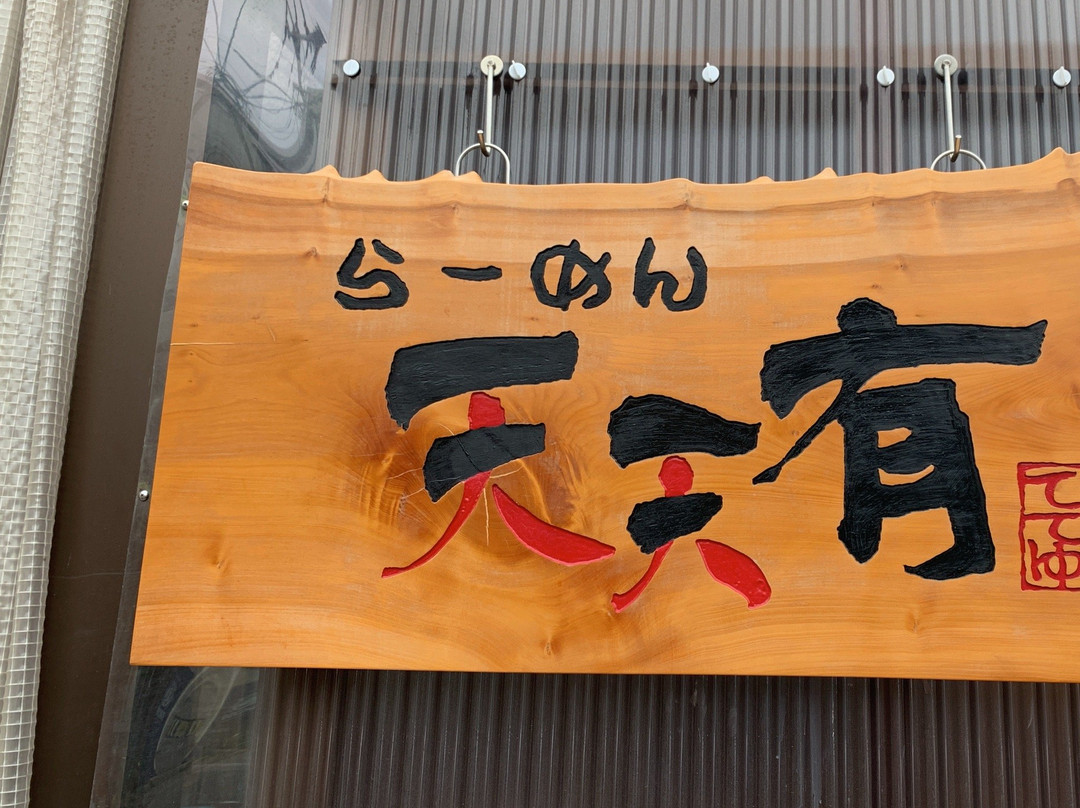 らーめん
天天有
て
て
ゆ